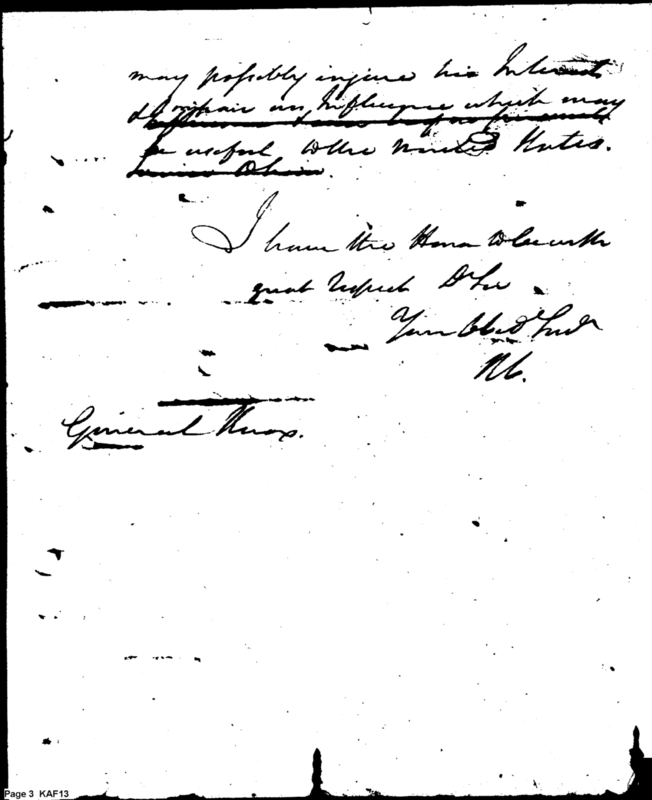 may possibly injure his Interest
& impair an Influence which may
be useful to the United States.
I have the Honor to be with
great respect Dr Sir
Your Obedt Servt
General Knox.
Page 3 KAF13